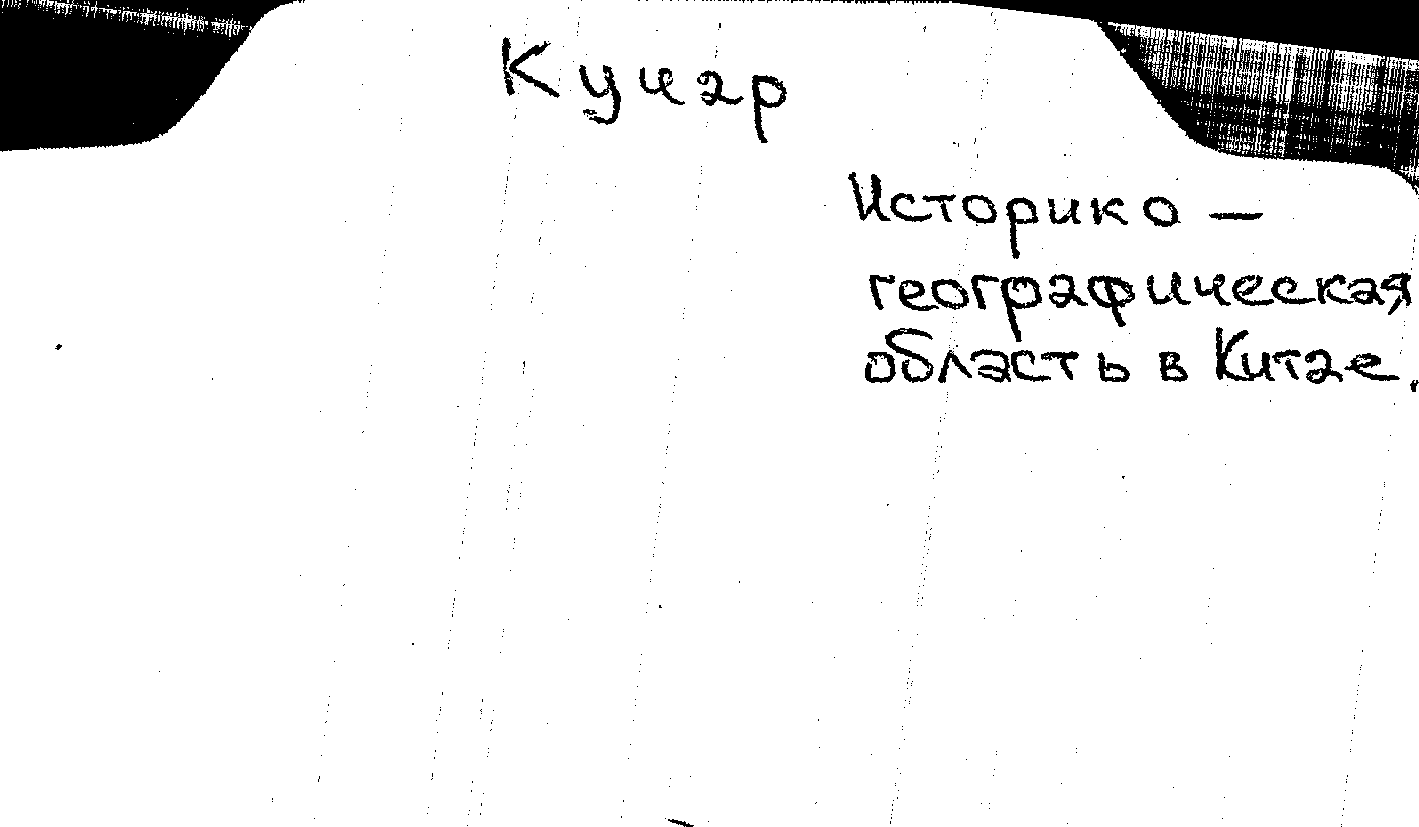 Кучар
Историко —
географическая
область в Китае.